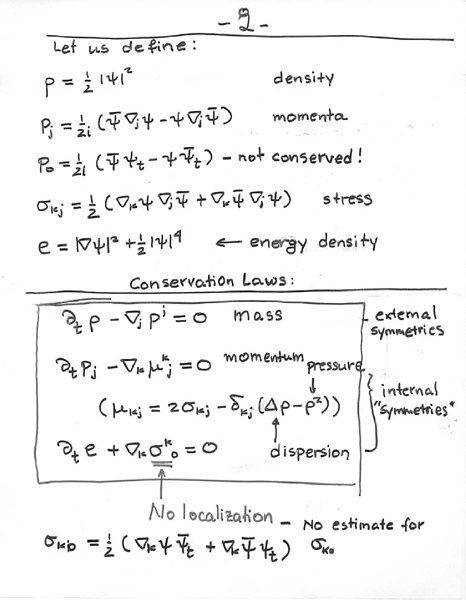 - 2 -
Let us define:
ρ = ½ |ψ|² density
Pⱼ = 1/2i (ψ̄ ∇ⱼψ - ψ ∇ⱼψ̄) momenta
P₀ = 1/2i (ψ̄ ψₜ - ψ ψ̄ₜ) - not conserved!
σₖⱼ = ½ (∇ₖψ ∇ⱼψ̄ + ∇ₖψ̄ ∇ⱼψ) stress
e = |∇ψ|² + ½|ψ|⁴ ← energy density
Conservation Laws:
∂ₜρ - ∇ⱼ pʲ = 0 mass
external
symmetries
∂ₜPⱼ - ∇ₖ μⱼᵏ = 0 momentum
pressure
(μₖⱼ = 2σₖⱼ - δₖⱼ (Δρ - ρ²))
internal
"symmetries"
∂ₜ e + ∇ₖ σᵏ₀ = 0
dispersion
No localization - No estimate for
σₖ₀ = ½ (∇ₖψ ψ̄ₜ + ∇ₖψ̄ ψₜ) σₖ₀